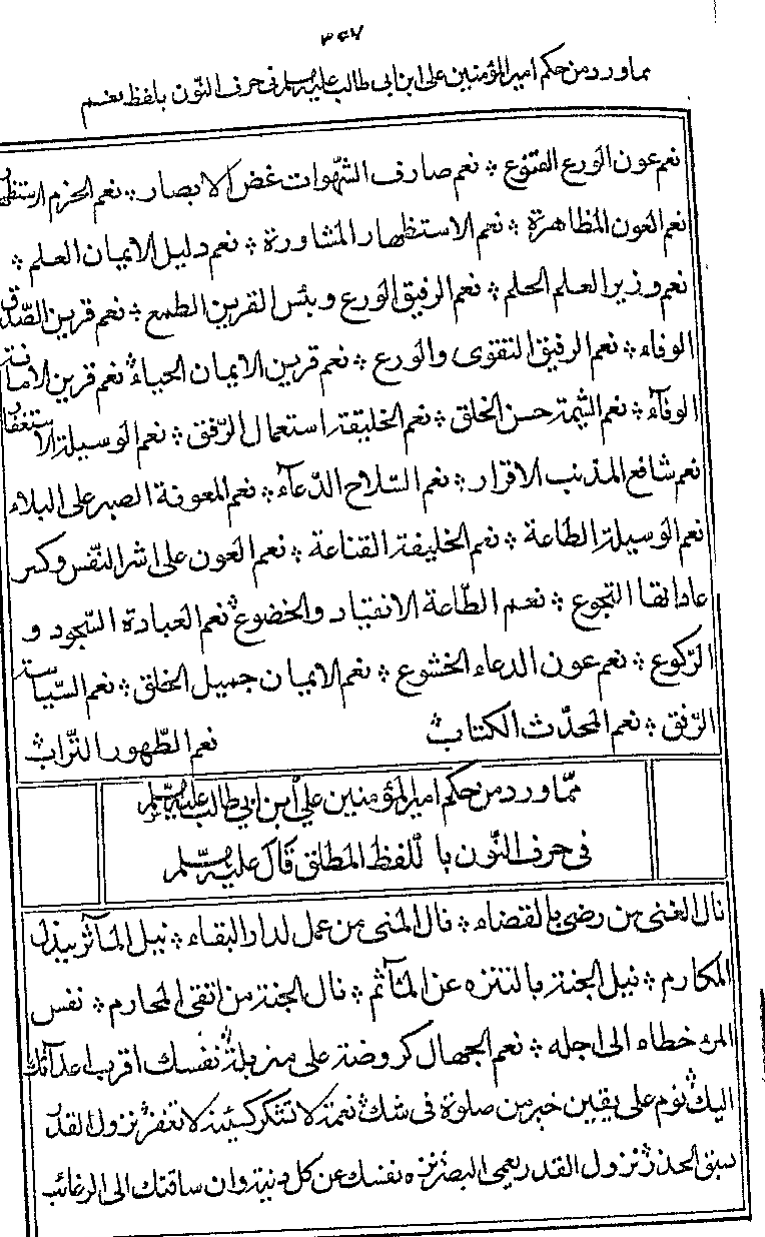 ٣٤٧
مما ورد من حكم امير المؤمنين على ابن ابى طالب عليه السلام فى حرف النّون بلفظ نعم
نعم عون الورع القنوع ؞ نعم صارف الشّهوات غض الابصار ؞ نعم الحزم الاستظهار
نعم العون المظاهرة ؞ نعم الاستظهار المشاورة ؞ نعم دليل الايمان العلم ؞
نعم وزير العلم الحلم ؞ نعم الرفيق الورع وبئس القرين الطمع ؞ نعم قرين الصّدق
الوفاء ؞ نعم الرفيق التقوى والورع ؞ نعم قرين الايمان الحياء ؞ نعم قرين الامانة
الوفآء ؞ نعم الشّيمة حسن الخلق ؞ نعم الخليقة استعمال الرّفق ؞ نعم الوسيلة الاستغفار
نعم شافع المذنب الاقرار ؞ نعم السّلاح الدّعآء ؞ نعم المعونة الصبر على البلاء
نعم الوسيلة الطاعة ؞ نعم الخليفة القناعة ؞ نعم العون على اشر النّفس وكسر
عاداتها التجوع ؞ نعم الطّاعة الانقياد والخضوع ؞ نعم العبادة السّجود و
الرّكوع ؞ نعم عون الدعاء الخشوع ؞ نعم الايمان جميل الخلق ؞ نعم السّياسة
الرّفق ؞ نعم المحدّث الكتاب ؞ نعم الطّهور التّراب ؞
ممّا ورد من حكم امير المؤمنين علي ابن ابي طالب عليه السّلام
فى حرف النّون باللّفظ المطلق قَالَ عليه السّلام
نال الغنى من رضى بالقضاء ؞ نال المنى من عمل لدار البقاء ؞ نيل المآثر ببذل
المكارم ؞ نيل الجنة بالتنزه عن المآثم ؞ نال الجنة من اتقى المحارم ؞ نفس
المرء خطاه الى اجله ؞ نعم الجهال كروضة على مزبلة ؞ نفسك اقرب اعدآئك
اليك ؞ نوم على يقين خير من صلوة فى شك ؞ نعمة لا تشكر كسيئة لا تغفر ؞ نزول القدر
يسبق الحذر ؞ نزول القدر يعمى البصر ؞ نزه نفسك عن كل دنية وان ساقتك الى الرغائب